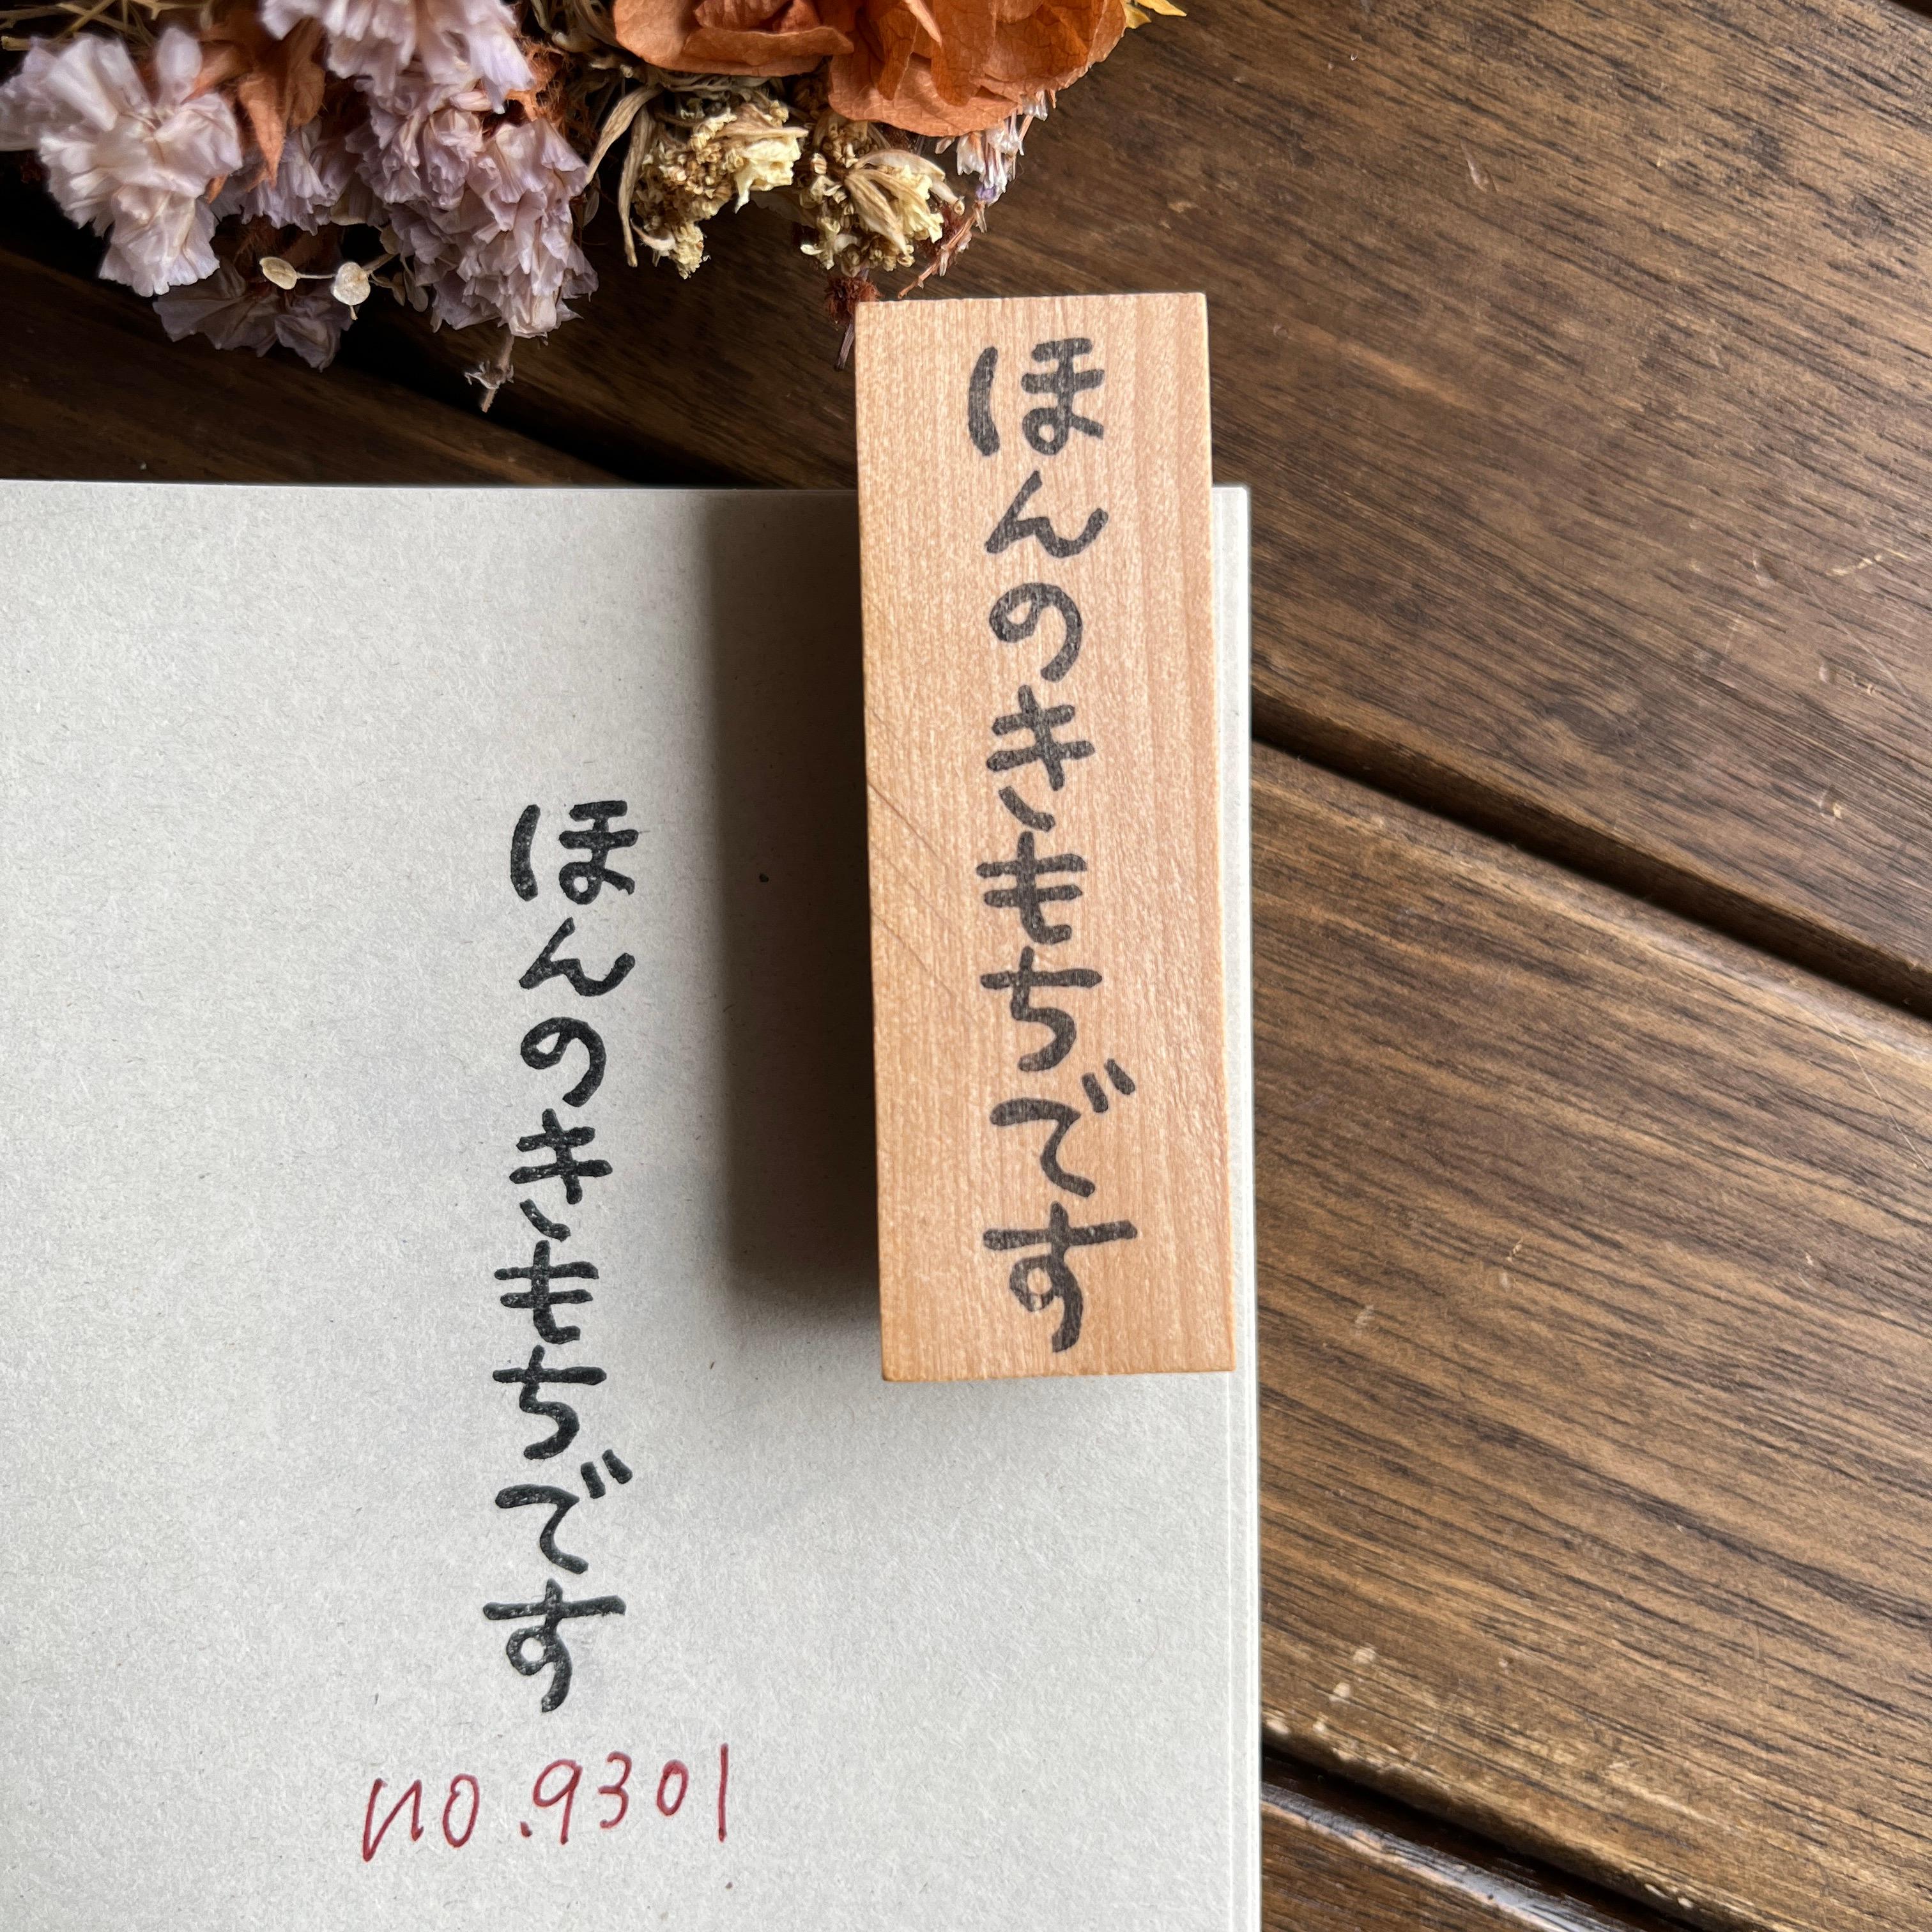 ほんのきもちです
ほんのきもちです
no.9301